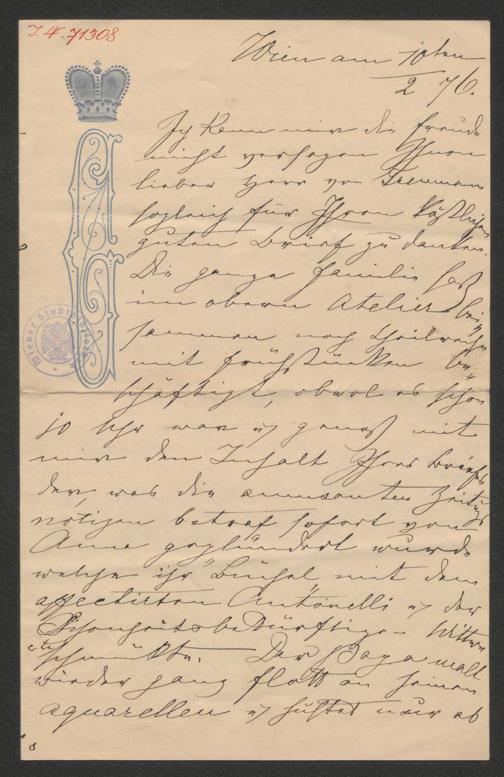 J. N. 71308
Wien am 10ten
2 76.
Ich kann mir die Freude
nicht versagen Ihnen
lieber Herr von
sogleich für Ihren köstlichen
guten Brief zu danken.
Die ganze Familie saß
im obern Atelier bei
sammen noch theilweise
mit Frühstücken be
schäftigt, obwol es schon
10 Uhr war u genoß mit
mir den Inhalt Ihres Briefes
der, was die amusanten Zeitungs
nötigen betraf sofort von
Anna geplündert wurde
welche ihr Büchel mit dem
affectirten Antonelli u der
Schönheitsbedürftige - Wittwe
schmückte. Der Papa malt
wieder ganz flott an seinen
aquarellen u hustet nur ab
Wiener Stadt